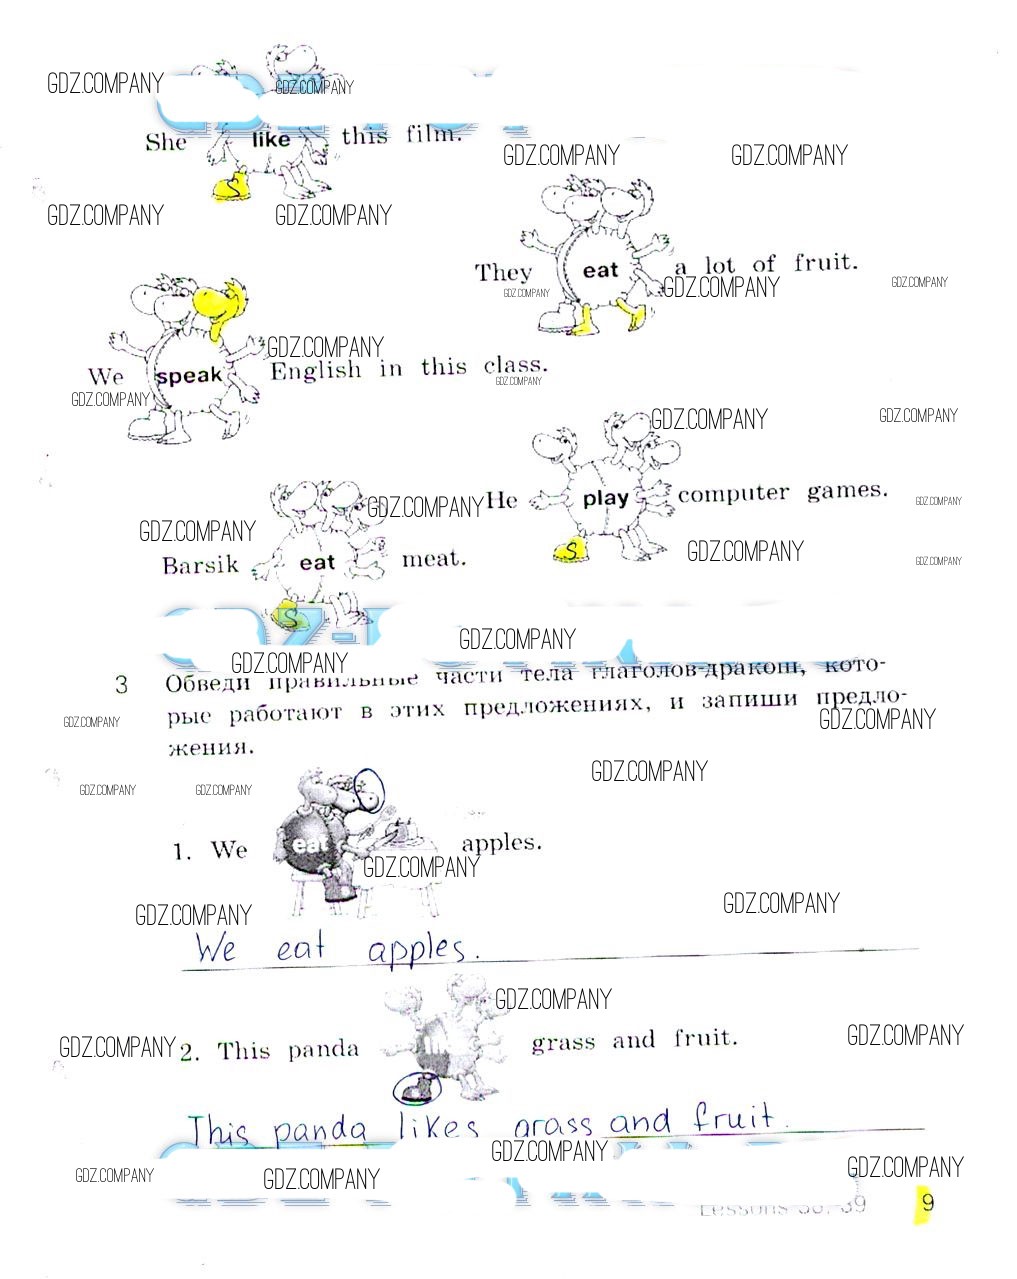 GDZ.COMPANY
GDZ.COMPANY
She like this film.
S
GDZ.COMPANY
GDZ.COMPANY
GDZ.COMPANY
GDZ.COMPANY
They eat a lot of fruit.
GDZ.COMPANY
GDZ.COMPANY
GDZ.COMPANY
GDZ.COMPANY
We speak English in this class.
GDZ.COMPANY
GDZ.COMPANY
GDZ.COMPANY
GDZ.COMPANY
He play computer games.
S
GDZ.COMPANY
GDZ.COMPANY
GDZ.COMPANY
GDZ.COMPANY
GDZ.COMPANY
Barsik eat meat.
S
GDZ.COMPANY
GDZ.COMPANY
3 Обведи правильные части тела глаголов-дракош, кото-
рые работают в этих предложениях, и запиши предло-
жения.
GDZ.COMPANY
GDZ.COMPANY
GDZ.COMPANY
GDZ.COMPANY
GDZ.COMPANY
1. We eat apples.
GDZ.COMPANY
GDZ.COMPANY
GDZ.COMPANY
We eat apples.
GDZ.COMPANY
GDZ.COMPANY
GDZ.COMPANY
2. This panda grass and fruit.
This panda likes grass and fruit.
GDZ.COMPANY
GDZ.COMPANY
GDZ.COMPANY
GDZ.COMPANY
Lessons 9